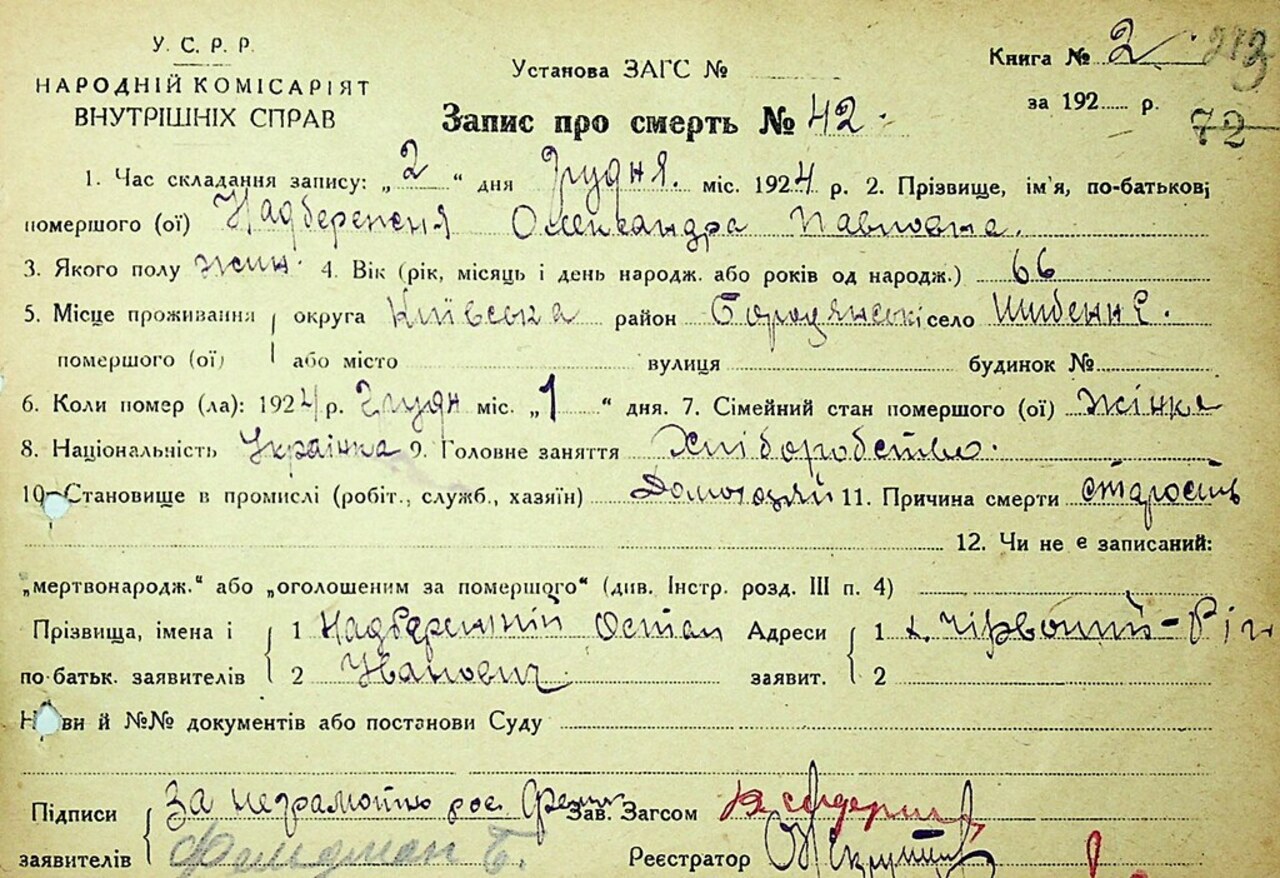 У. С. Р. Р.
НАРОДНІЙ КОМІСАРІЯТ
ВНУТРІШНІХ СПРАВ
Установа ЗАГС №
Запис про смерть № 42.
Книга № 2
за 192 р.
72
1. Час складання запису: „2“ дня Грудня. міс. 1924 р. 2. Прізвище, ім'я, по-батькові
помершого (ої) Надбережня Олександра Павловна.
3. Якого полу жин. 4. Вік (рік, місяць і день народж. або років од народж.) 66
5. Місце проживання округа Київська район Бородянські село Шибенне.
помершого (ої) або місто вулиця будинок №
6. Коли помер (ла): 1924 р. Грудн міс. „1“ дня. 7. Сімейний стан помершого (ої) жінка
8. Національність Українка 9. Головне заняття Хліборобство.
10. Становище в промислі (робіт., служб., хазяїн) 11. Причина смерти старость
12. Чи не є записаний:
„мертвонародж.“ або „оголошеним за помершого“ (див. Інстр. розд. III п. 4)
Прізвища, імена і 1 Надбережній Остап Адреси 1 х. Чірвоний-Ріг
по-батьк. заявителів 2 Іванович заявит. 2
Назви й №№ документів або постанови Суду
Підписи За неграмотно рос. Зав. Загсом
заявителів Фельдман Б. Реєстратор